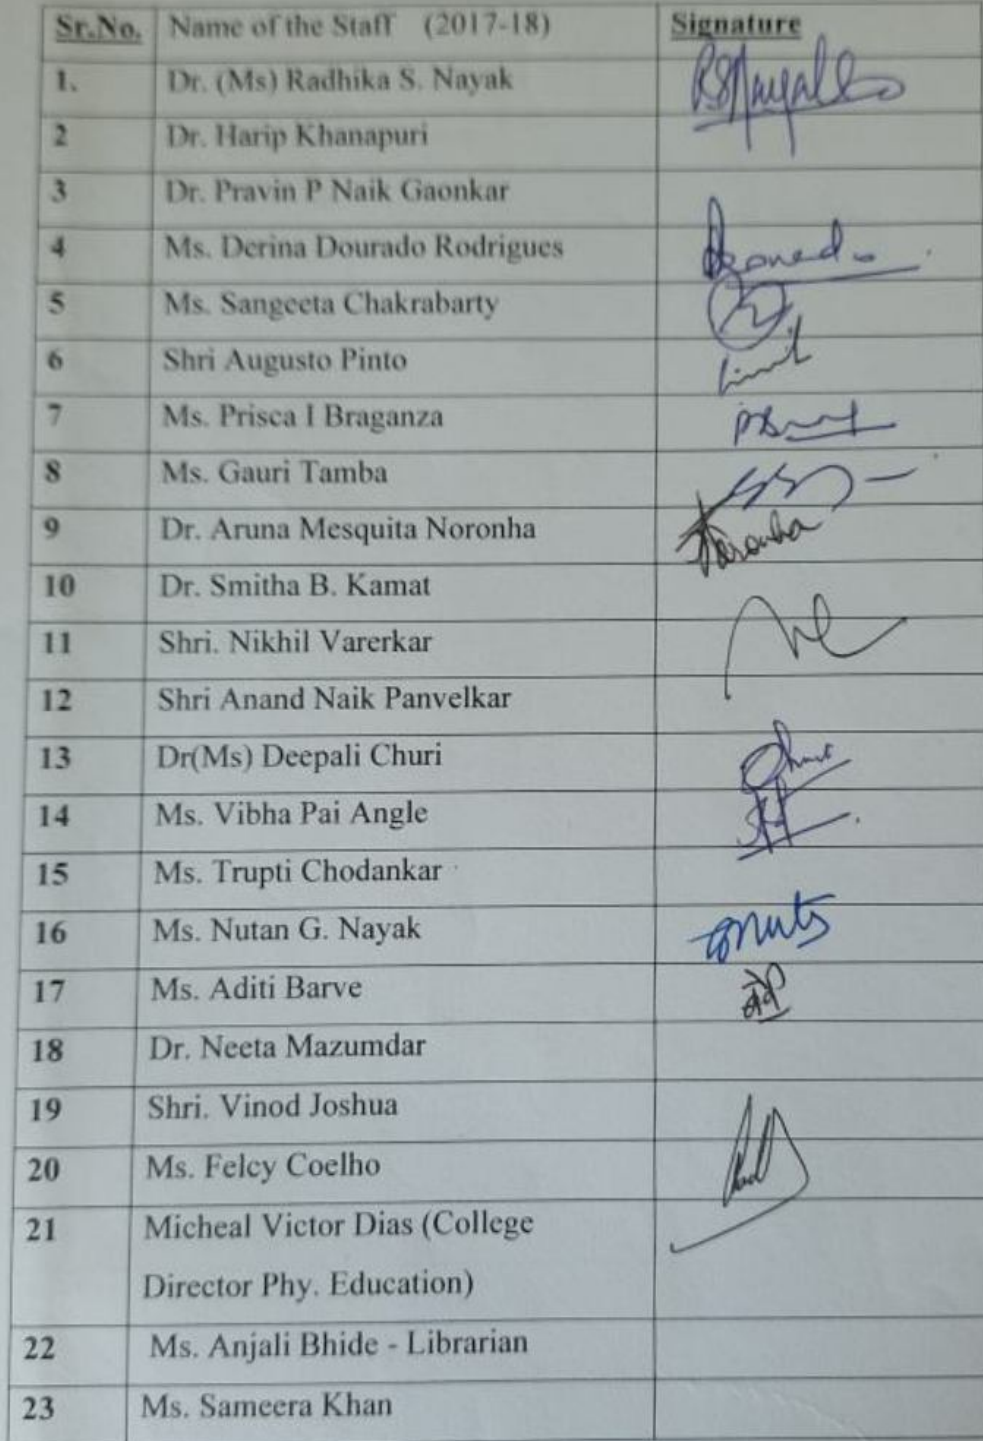 Sr.No. Name of the Staff (2017-18) Signature
1. Dr. (Ms) Radhika S. Nayak RSNayak
2 Dr. Harip Khanapuri
3 Dr. Pravin P Naik Gaonkar
4 Ms. Derina Dourado Rodrigues
5 Ms. Sangeeta Chakrabarty
6 Shri Augusto Pinto
7 Ms. Prisca I Braganza
8 Ms. Gauri Tamba
9 Dr. Aruna Mesquita Noronha Noronha
10 Dr. Smitha B. Kamat
11 Shri. Nikhil Varerkar
12 Shri Anand Naik Panvelkar
13 Dr(Ms) Deepali Churi
14 Ms. Vibha Pai Angle
15 Ms. Trupti Chodankar
16 Ms. Nutan G. Nayak
17 Ms. Aditi Barve
18 Dr. Neeta Mazumdar
19 Shri. Vinod Joshua
20 Ms. Felcy Coelho
21 Micheal Victor Dias (College
Director Phy. Education)
22 Ms. Anjali Bhide - Librarian
23 Ms. Sameera Khan